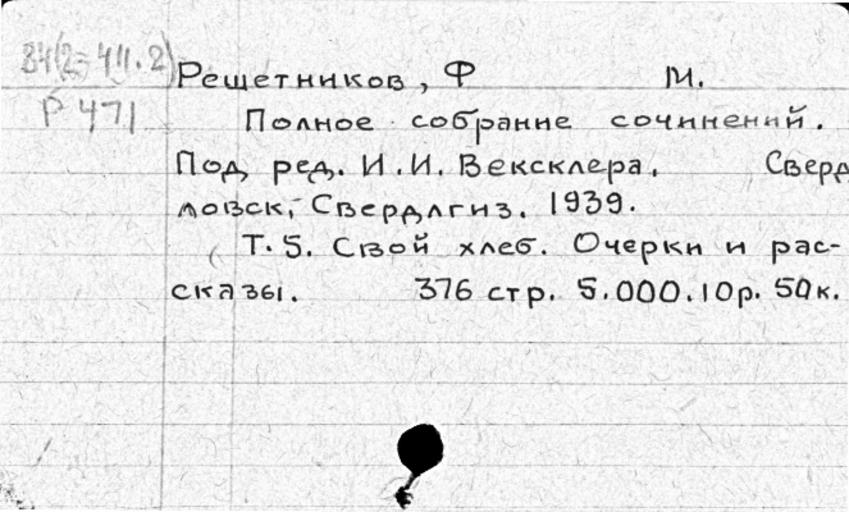 84(2=411.2)
Р 471
Решетников, Ф М.
Полное собрание сочинений.
Под ред. И.И. Векслера. Сверд
ловск, Свердлгиз. 1939.
Т. 5. Свой хлеб. Очерки и рас-
сказы. 376 стр. 5.000. 10р. 50к.